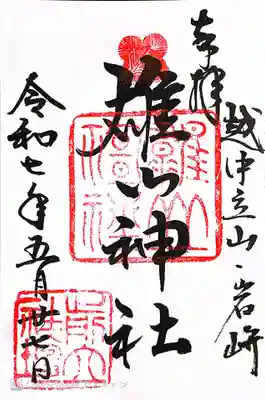 奉拝
越中立山・岩峅
雄山神社
令和七年五月廿七日
雄山
神社